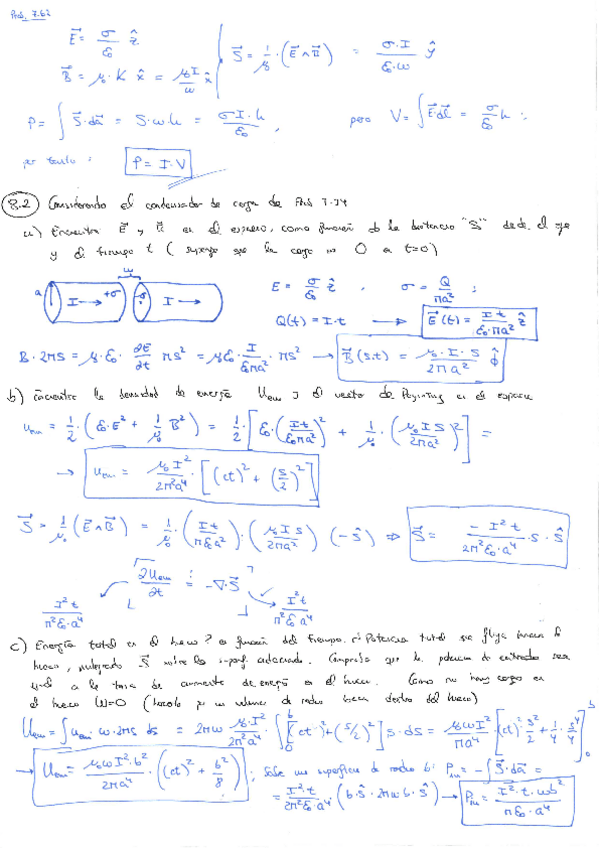 Prob. 7.62
$\vec{E} = \frac{\sigma}{\epsilon_0} \hat{z}$
$\vec{B} = \mu_0 \cdot K \hat{x} = \frac{\mu_0 I}{w} \hat{x}$
$\vec{S} = \frac{1}{\mu_0} \cdot (\vec{E} \wedge \vec{B}) = \frac{\sigma \cdot I}{\epsilon_0 \cdot w} \hat{y}$
$P = \int \vec{S} \cdot d\vec{a} = S \cdot w \cdot h = \frac{\sigma I \cdot h}{\epsilon_0}$, pero $V = \int \vec{E} \cdot d\vec{l} = \frac{\sigma}{\epsilon_0} h$ ;
por tanto : $P = I \cdot V$
8.2 Considerando el condensador de carga de Prob 7.34
a) Encuentra $\vec{E}$ y $\vec{B}$ en el espacio, como función de la distancia "S" desde el eje
y el tiempo t ( suponga que la carga es 0 a t=0 )
w
a I → +σ -σ I →
$E = \frac{\sigma}{\epsilon_0} \hat{z}$ , $\sigma = \frac{Q}{\pi a^2}$ ;
$Q(t) = I \cdot t$ → $\vec{E}(t) = \frac{I t}{\epsilon_0 \cdot \pi a^2} \hat{z}$
$B \cdot 2\pi S = \mu_0 \cdot \epsilon_0 \cdot \frac{\partial E}{\partial t} \pi s^2 = \mu_0 \epsilon_0 \cdot \frac{I}{\epsilon_0 \pi a^2} \cdot \pi s^2$ → $\vec{B}(s,t) = \frac{\mu_0 \cdot I \cdot s}{2\pi a^2} \hat{\phi}$
b) Encuentre la densidad de energía $U_{em}$ y el vector de Poynting en el espacio
$u_{em} = \frac{1}{2} \cdot (\epsilon_0 \cdot E^2 + \frac{1}{\mu_0} B^2) = \frac{1}{2} \cdot [\epsilon_0 \cdot (\frac{I t}{\epsilon_0 \pi a^2})^2 + \frac{1}{\mu_0} \cdot (\frac{\mu_0 I S}{2\pi a^2})^2] =$
→ $u_{em} = \frac{\mu_0 I^2}{2\pi^2 a^4} \cdot [(ct)^2 + (\frac{s}{2})^2]$
$\vec{S} = \frac{1}{\mu_0} (\vec{E} \wedge \vec{B}) = \frac{1}{\mu_0} (\frac{I t}{\pi \epsilon_0 a^2}) \cdot (\frac{\mu_0 I s}{2\pi a^2}) (-\hat{s})$ ⇒ $\vec{S} = \frac{- I^2 t}{2\pi^2 \epsilon_0 \cdot a^4} \cdot s \cdot \hat{s}$
$\frac{\partial U_{em}}{\partial t} = -\nabla \cdot \vec{S}$
$\frac{I^2 t}{\pi^2 \epsilon_0 \cdot a^4}$ $\frac{I^2 t}{\pi^2 \epsilon_0 \cdot a^4}$
c) Energía total en el hueco? en función del tiempo. Potencia total que fluye hacia el
hueco, integrando $\vec{S}$ sobre la superf. adecuada. Comprueba que la potencia de entrada sea
igual a la tasa de aumento de energía en el hueco. Como no hay cargas en
el hueco W=0 (hacerlo para un volumen de radio b<a dentro del hueco)
$U_{em} = \int u_{em} \cdot w \cdot 2\pi s \, ds = 2\pi w \frac{\mu_0 \cdot I^2}{2\pi^2 a^4} \cdot \int_0^b [(ct)^2 + (s/2)^2] s \cdot ds = \frac{\mu_0 w I^2}{\pi a^4} \cdot [(ct)^2 \cdot \frac{s^2}{2} + \frac{1}{4} \cdot \frac{s^4}{4}]_0^b$
→ $U_{em} = \frac{\mu_0 w I^2 \cdot b^2}{2\pi a^4} \cdot ((ct)^2 + \frac{b^2}{8})$ ; Sobre una superficie de radio b: $P_{in} = -\int \vec{S} \cdot d\vec{a} =$
$= \frac{I^2 \cdot t}{2\pi^2 \epsilon_0 \cdot a^4} (b \cdot \hat{s} \cdot 2\pi w \cdot b \cdot \hat{s})$ → $P_{in} = \frac{I^2 \cdot t \cdot w b^2}{\pi \epsilon_0 \cdot a^4}$